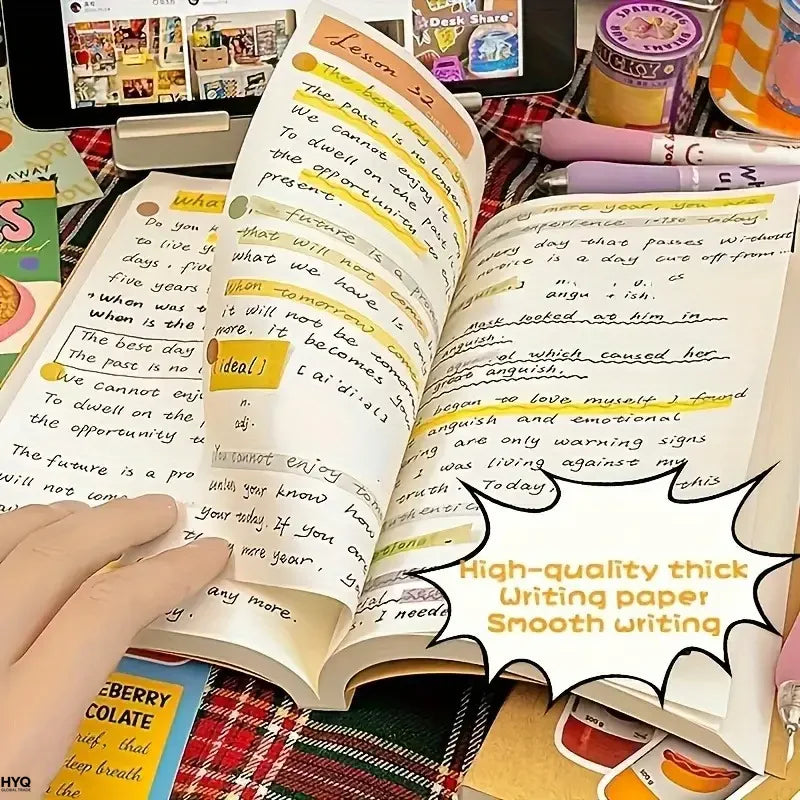 Desk Share
SPARKLING
DREAMS
Lesson 32
The best day of y
The past is no longer
We cannot enjoy it
To dwell on the past
the opportunity to
present.
future is a pro
that will not come
what we have is on
When tomorrow com
it will not be tomor
more, it becomes yo
[ideal]
[ai'diəl]
n.
adj.
You cannot enjoy tom
unless your know how
your today. If you are
more year, y
what
Do you
to live y
days, five
five years
when was t
When is the
The best day
The past is no
We cannot enj
To dwell on the
the opportunity t
The future is a pro
will not com
any more.
more year, you are
experience today.
every day that passes without
notice is a day cut off from...
angu + ish.
looked at him in
anguish.
which caused her
great anguish.
began to love myself I found
anguish and emotional
are only warning signs
I was living against my
truth. Today, this
I neede
High-quality thick
Writing paper
Smooth writing
EBERRY
COLATE
rief, that
deep breath
the
500 g
HYQ
GLOBAL TRADE